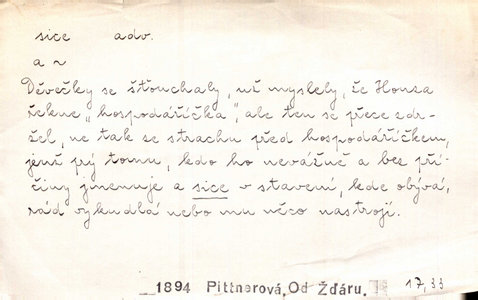 sice adv.
a ~
Děvečky se šťouchaly, už myslely, že Honza
řekne „hospodáříčka", ale ten se přece zdr-
žel, ne tak se strachu před hospodáříčkem,
jenž prý tomu, kdo ho nevážně a bez pří-
činy jmenuje a sice v stavení, kde obývá,
rád vykudlá nebo mu něco nastrojí.
1894 Pittnerová, Od Žďáru. 17,33